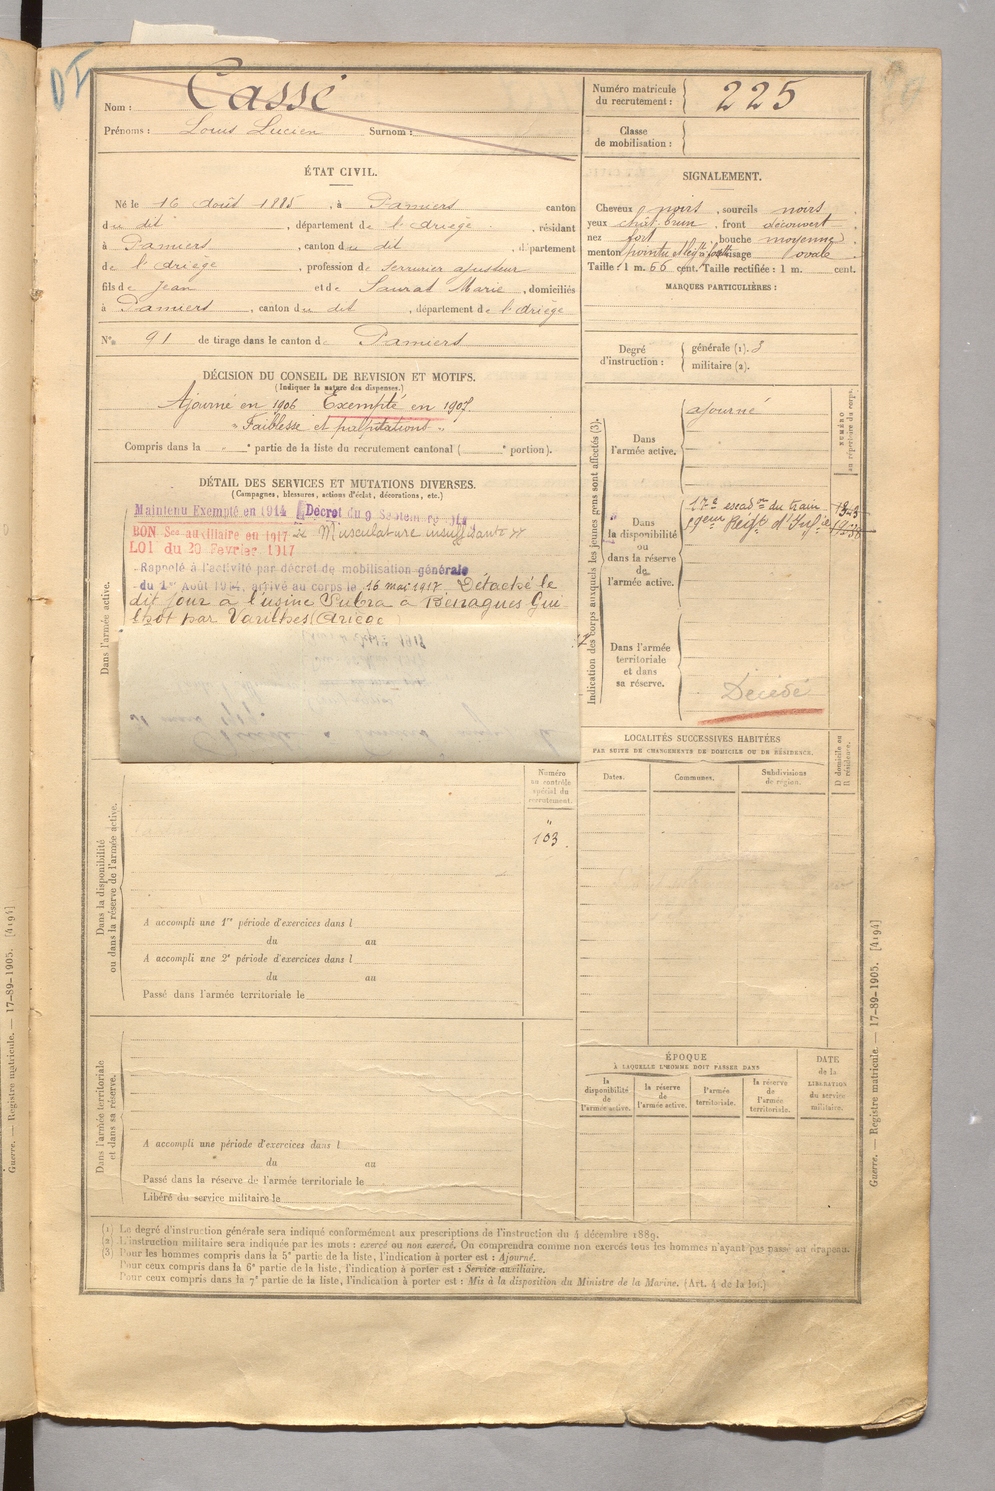 Nom : Cassé
Prénoms : Louis Lucien Surnom :
Numéro matricule du recrutement : 225
Classe de mobilisation :
ÉTAT CIVIL.
Né le 16 Août 1885, à Pamiers canton
du dit, département de l'Ariège, résidant
à Pamiers, canton du dit, département
de l'Ariège, profession de serrurier ajusteur
fils de Jean et de Saurat Marie, domiciliés
à Pamiers, canton du dit, département de l'Ariège
N° 91 de tirage dans le canton de Pamiers
SIGNALEMENT.
Cheveux noirs, sourcils noirs
yeux chât. brun, front découvert
nez fort, bouche moyenne
menton pointu visage ovale
Taille : 1 m. 66 cent. Taille rectifiée : 1 m. cent.
MARQUES PARTICULIÈRES :
Degré d'instruction : générale (1). 3
militaire (2).
DÉCISION DU CONSEIL DE REVISION ET MOTIFS.
(Indiquer la nature des dispenses.)
Ajourné en 1906 Exempté en 1907.
"Faiblesse et palpitations"
Compris dans la e partie de la liste du recrutement cantonal ( e portion).
DÉTAIL DES SERVICES ET MUTATIONS DIVERSES.
(Campagnes, blessures, actions d'éclat, décorations, etc.)
Dans l'armée active.
Maintenu Exempté en 1914 Décret du 9 Septembre 1914
BON Sce auxiliaire en 1917 Musculature insuffisante
LOI du 20 Fevrier 1917
Rappelé à l'activité par décret de mobilisation générale
du 1er Août 1914, arrivé au corps le 16 mai 1917. Détaché le
dit jour à l'usine
par Varilhes (Ariège)
Indication des corps auxquels les jeunes gens sont affectés (3).
NUMÉRO au répertoire du corps.
Dans l'armée active.
ajourné
Dans la disponibilité ou dans la réserve de l'armée active.
17e escadon du train
Dans l'armée territoriale et dans sa réserve.
Décédé
LOCALITÉS SUCCESSIVES HABITÉES
PAR SUITE DE CHANGEMENTS DE DOMICILE OU DE RÉSIDENCE.
Dates. Communes. Subdivisions de région.
D domicile ou R résidence.
Numéro au contrôle spécial du recrutement.
"
103
Dans la disponibilité ou dans la réserve de l'armée active.
A accompli une 1re période d'exercices dans l
du au
A accompli une 2e période d'exercices dans l
du au
Passé dans l'armée territoriale le
Dans l'armée territoriale et dans sa réserve.
A accompli une période d'exercices dans l
du au
Passé dans la réserve de l'armée territoriale le
Libéré du service militaire le
ÉPOQUE
À LAQUELLE L'HOMME DOIT PASSER DANS
la disponibilité de l'armée active.
la réserve de l'armée active.
l'armée territoriale.
la réserve de l'armée territoriale.
DATE de la LIBÉRATION du service militaire.
(1) Le degré d'instruction générale sera indiqué conformément aux prescriptions de l'instruction du 4 décembre 1889.
(2) L'instruction militaire sera indiquée par les mots : exercé ou non exercé. On comprendra comme non exercés tous les hommes n'ayant pas passé au drapeau.
(3) Pour les hommes compris dans la 5e partie de la liste, l'indication à porter est : Ajourné.
Pour ceux compris dans la 6e partie de la liste, l'indication à porter est : Service auxiliaire.
Pour ceux compris dans la 7e partie de la liste, l'indication à porter est : Mis à la disposition du Ministre de la Marine. (Art. 4 de la loi.)
Guerre. — Registre matricule. — 17-89-1905. [4194]
Guerre. — Registre matricule. — 17-89-1905. [4194]